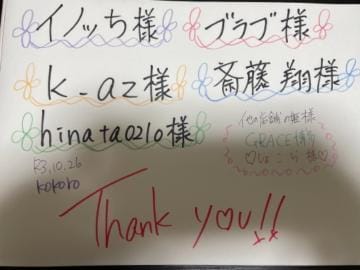 イノッち様
ブラブ様
k-az様
斎藤 翔様
hinata0210様
他店舗の姫様
GRACE博多
♡しょこら様♡
R3.10.26
kokoro
Thank you!!